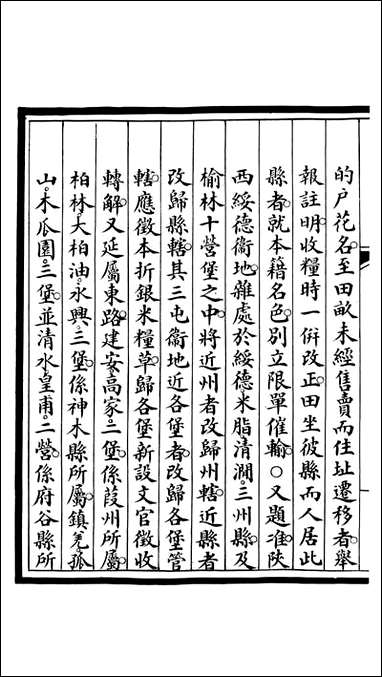 的戶花名至田畝未經售賣而住址遷移者舉
報註明收糧時一併改正田坐彼縣而人居此
縣者就本籍名色別立限單催輸○又題准陝
西綏德衞地雜處於綏德米脂清澗三州縣及
榆林十營堡之中將近州者改歸州轄近縣者
改歸縣轄其三屯衞地近各堡者改歸各堡管
轄應徵本折銀米糧草歸各堡新設文官徵收
轉解又延屬東路建安高家二堡係葭州所屬
柏林大柏油永興三堡係神木縣所屬鎮羌孤
山木瓜園三堡並清水皇甫二營係府谷縣所